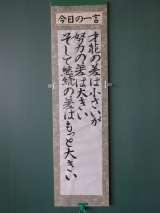 今日の一言
才能の差は小さいが
努力の差は大きい
そして継続の差はもっと大きい